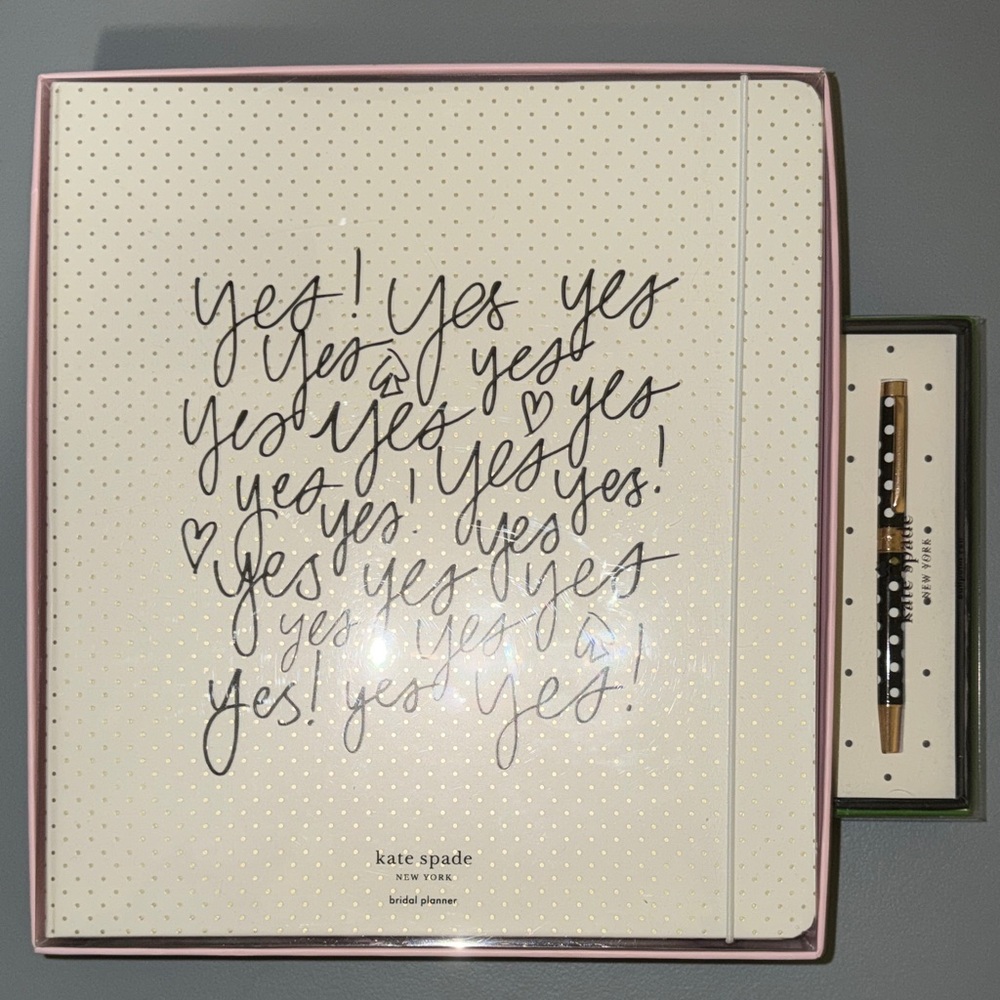 yes! yes yes
yes yes
yes yes yes
yes yes yes!
yes! yes
yes yes yes
yes yes !
yes! yes yes!
kate spade
NEW YORK
bridal planner
kate spade
NEW YORK